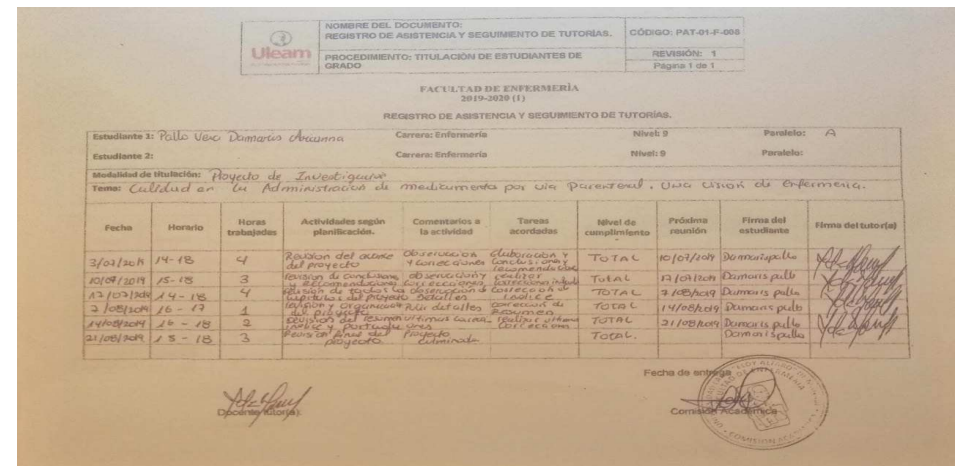 Uleam
NOMBRE DEL DOCUMENTO:
REGISTRO DE ASISTENCIA Y SEGUIMIENTO DE TUTORÍAS.
CÓDIGO: PAT-01-F-005
PROCEDIMIENTO: TITULACIÓN DE ESTUDIANTES DE
GRADO
REVISIÓN: 1
Página 1 de 1
FACULTAD DE ENFERMERÍA
2019-2020 (1)
REGISTRO DE ASISTENCIA Y SEGUIMIENTO DE TUTORÍAS.
Estudiante 1: Pallo Vera Damaris Arianna Carrera: Enfermería Nivel: 9 Paralelo: A
Estudiante 2: Carrera: Enfermería Nivel: 9 Paralelo:
Modalidad de titulación: Proyecto de Investigación
Tema: Calidad en la Administracion de medicamento por via parenteral. Una vision de enfermeria.
Fecha Horario Horas trabajadas Actividades según planificación. Comentarios a la actividad Tareas acordadas Nivel de cumplimiento Próxima reunión Firma del estudiante Firma del tutor(a)
3/07/2019 14-18 4 Revision del avance del proyecto observacion y correcciones elaboracion y conclusiones y recomendaciones TOTAL 10/07/2019 Damaris pallo
10/07/2019 15-18 3 revision de conclusiones y recomendaciones observacion y correcciones realizar TOTAL 17/07/2019 Damaris pallo
17/07/2019 14-18 4 revision de todos los capitulos del proyecto observacion de detalles correccion de indice TOTAL 7/08/2019 Damaris pallo
7/08/2019 16-17 1 revision y organizacion del proyecto Pulir detalles correccion de Resumen TOTAL 14/08/2019 Damaris pallo
14/08/2019 16-18 2 revision del resumen ingles y portugues ultimas correcciones realizar ultimas correcciones TOTAL 21/08/2019 Damaris pallo
21/08/2019 15-18 3 Revision final del proyecto Proyecto culminado TOTAL. Damaris pallo
Fecha de entrega
Docente tutor(a)
Comisión Académica